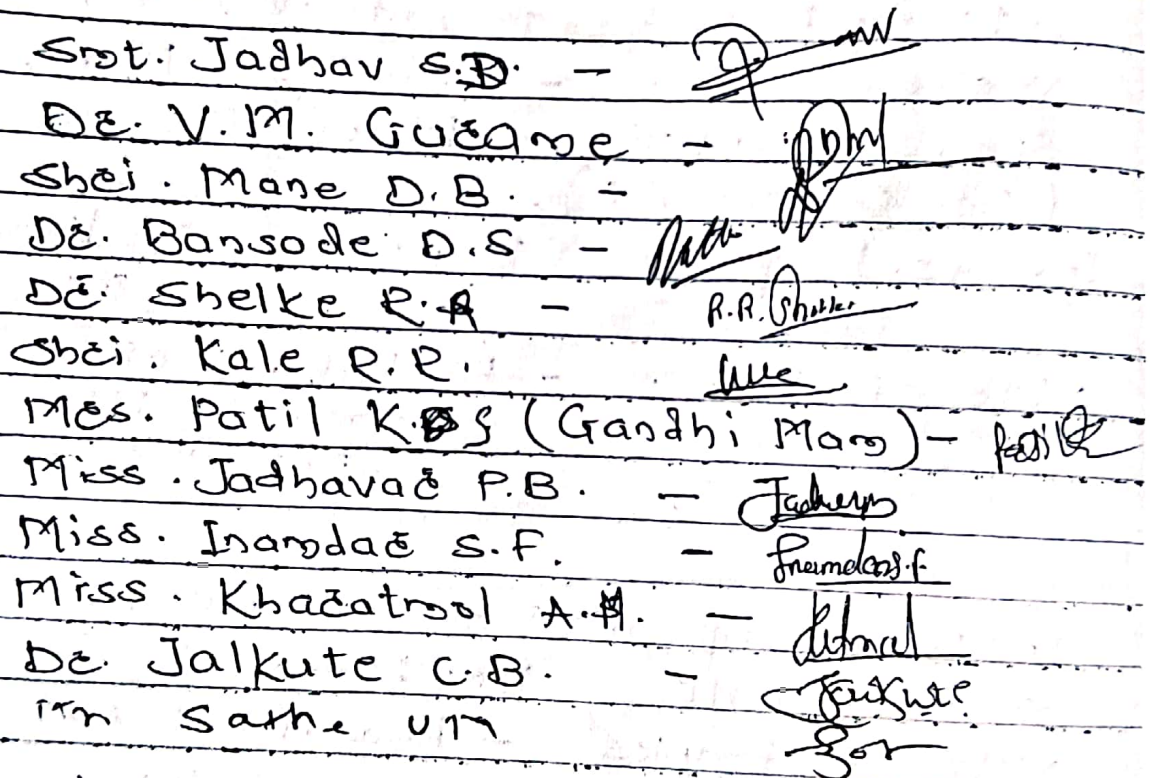 Smt. Jadhav S.B. -
Dr. V.M. Gurame -
Shri. Mane D.B. -
Dr. Bansode D.S -
Dr. Shelke R.R - R.R. Shelke
Shri. Kale R.R.
Mrs. Patil K.S (Gandhi Mam) - Patil
Miss. Jadhavar P.B. -
Miss. Inamdar S.F. - Inamdar S.F
Miss. Kharatmol A.H. -
Dr. Jalkute C.B. - Jalkute
Sathe